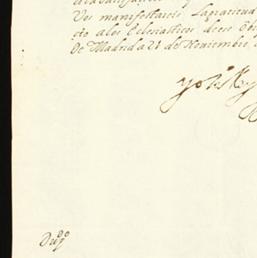 Vos manifestareis la gratitud
cto a los Eclesiasticos de esse Obi
De Madrid a 21 de Noviembre
yo el Rey
Dup.do